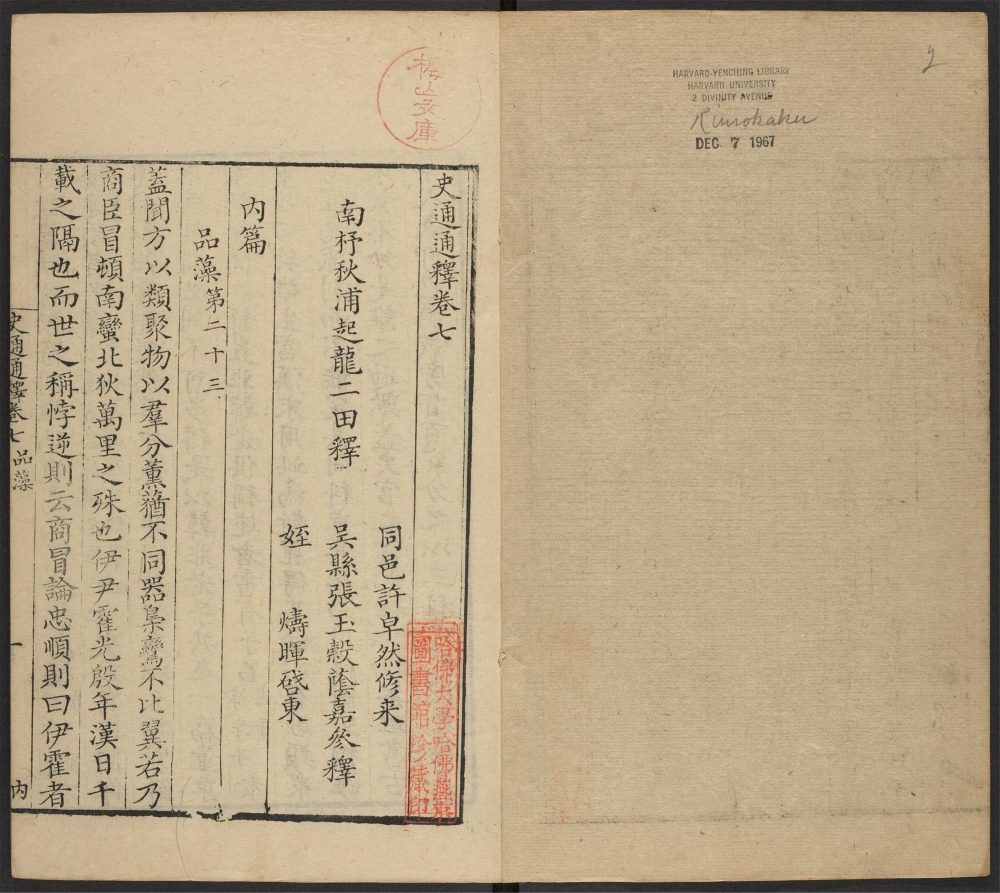 2
HARVARD-YENCHING LIBRARY
HARVARD UNIVERSITY
2 DIVINITY AVENUE
Kinokaku
DEC 7 1967
文庫
史通通釋卷七
同邑許卓然修来
南杼秋浦起龍二田釋
吳縣張玉穀蔭嘉參釋
姪 燽暉啓東
內篇
品藻第二十三
蓋聞方以類聚物以羣分薰蕕不同器梟鸞不比翼若乃
商臣冒頓南蠻北狄萬里之殊也伊尹霍光殷年漢日千
載之隔也而世之稱悖逆則云商冒論忠順則曰伊霍者
史通通釋卷七 品藻 一 內
哈佛大學哈佛燕京
圖書館珍藏印